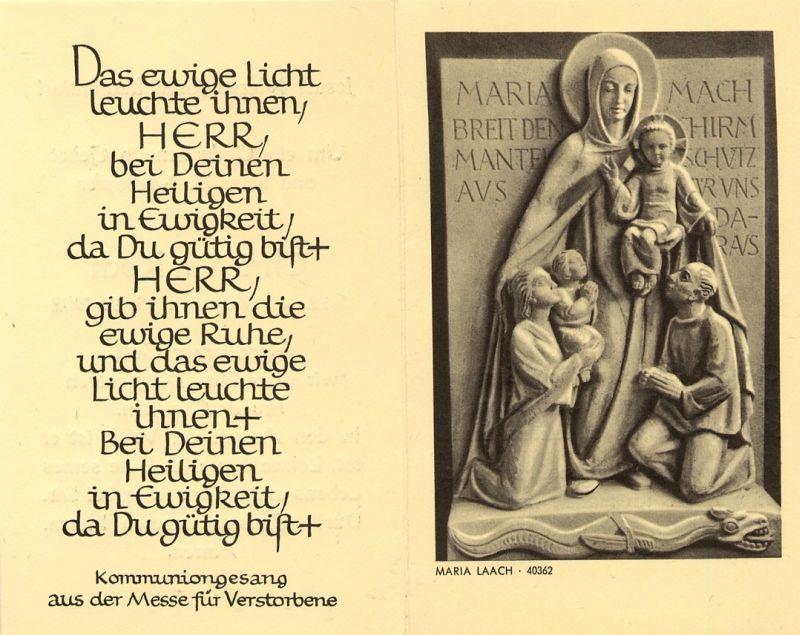 Das ewige Licht
leuchte ihnen,
HERR,
bei Deinen
Heiligen
in Ewigkeit,
da Du gütig biſt+
HERR,
gib ihnen die
ewige Ruhe,
und das ewige
Licht leuchte
ihnen+
Bei Deinen
Heiligen
in Ewigkeit,
da Du gütig biſt+
Kommuniongesang
aus der Messe für Verstorbene
MARIA MACH
BREIT DEN CHIRM
MANTEL SCHVTZ
AVS VR VNS
DA-
RAVS
MARIA LAACH · 40362